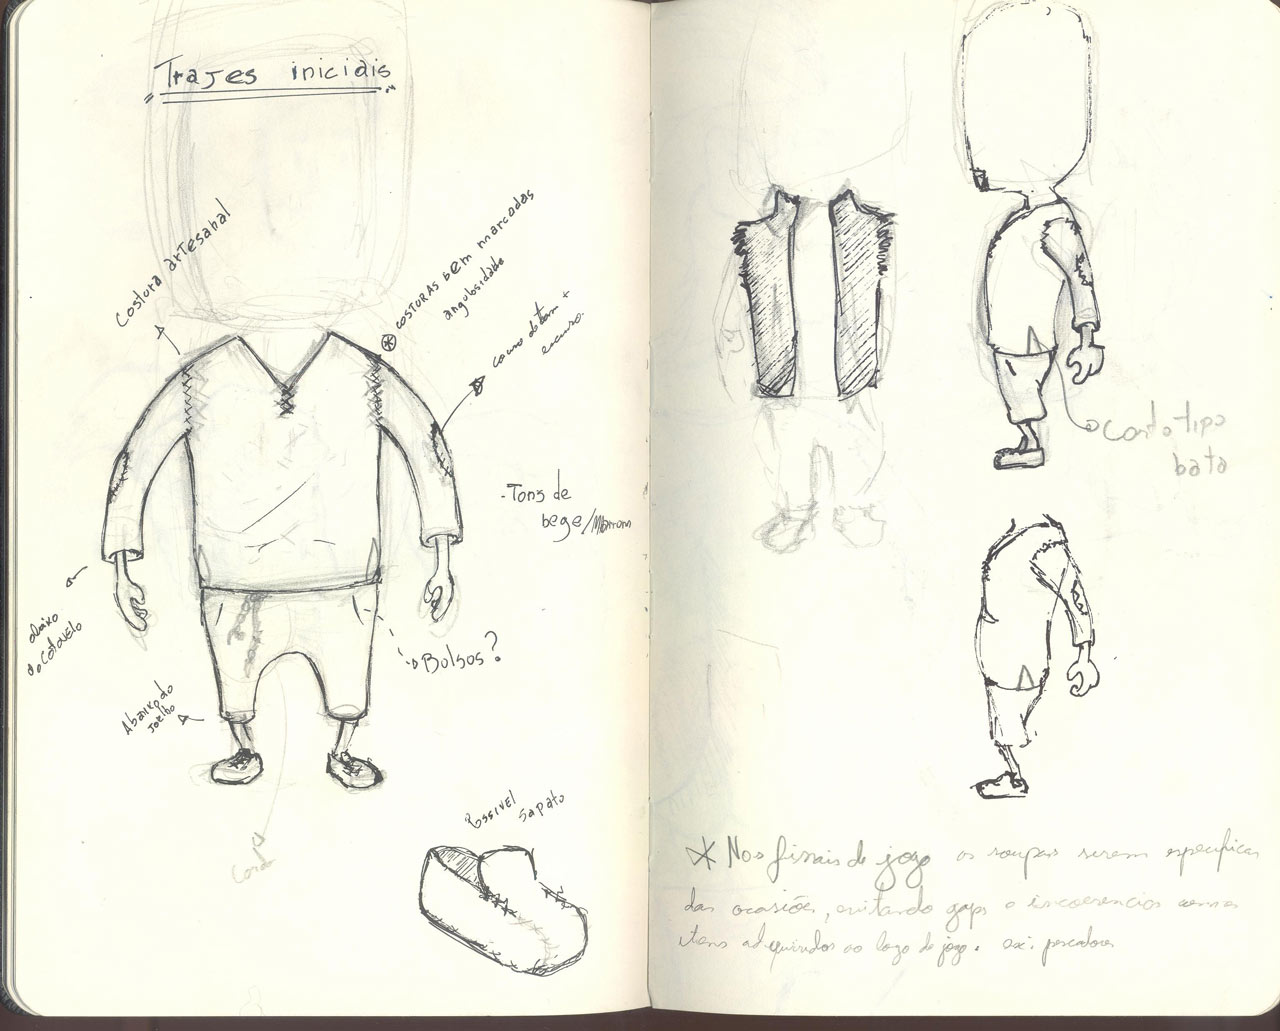 Trajes iniciais
Costura artesanal
COSTURAS bem marcadas
angulosidade
couro de tom +
escuro.
- Tons de
bege/Marrom
abaixo
do Cotovelo
Bolsos?
Abaixo do
joelho
Possivel
Sapato
tipo
bata
* Nos finais de jogo as roupas serem especificas
das ocasiões, evitando gaps e incoerencias
itens adquiridos ao logo do jogo. ex: pescadores